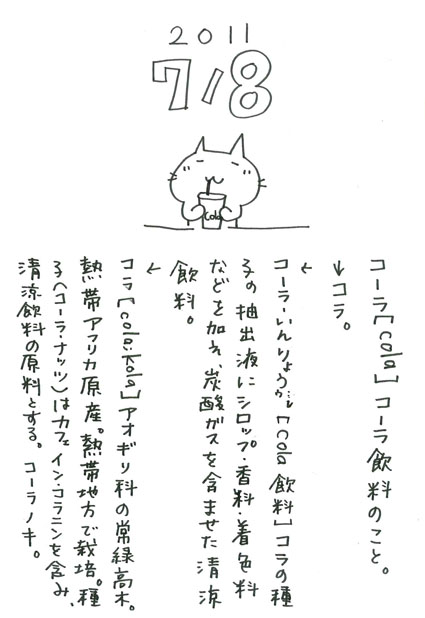 2011
7/8
Cola
コーラ[cola]コーラ飲料のこと。
↓コラ。
←
コーラ-いんりょう[cola 飲料]コラの種
子の抽出液にシロップ・香料・着色料
などを加え、炭酸ガスを含ませた清涼
飲料。
←
コラ[cola;kola]アオギリ科の常緑高木。
熱帯アフリカ原産。熱帯地方で栽培。種
子(コーラ・ナッツ)はカフェイン・コラニンを含み、
清涼飲料の原料とする。コーラノキ。